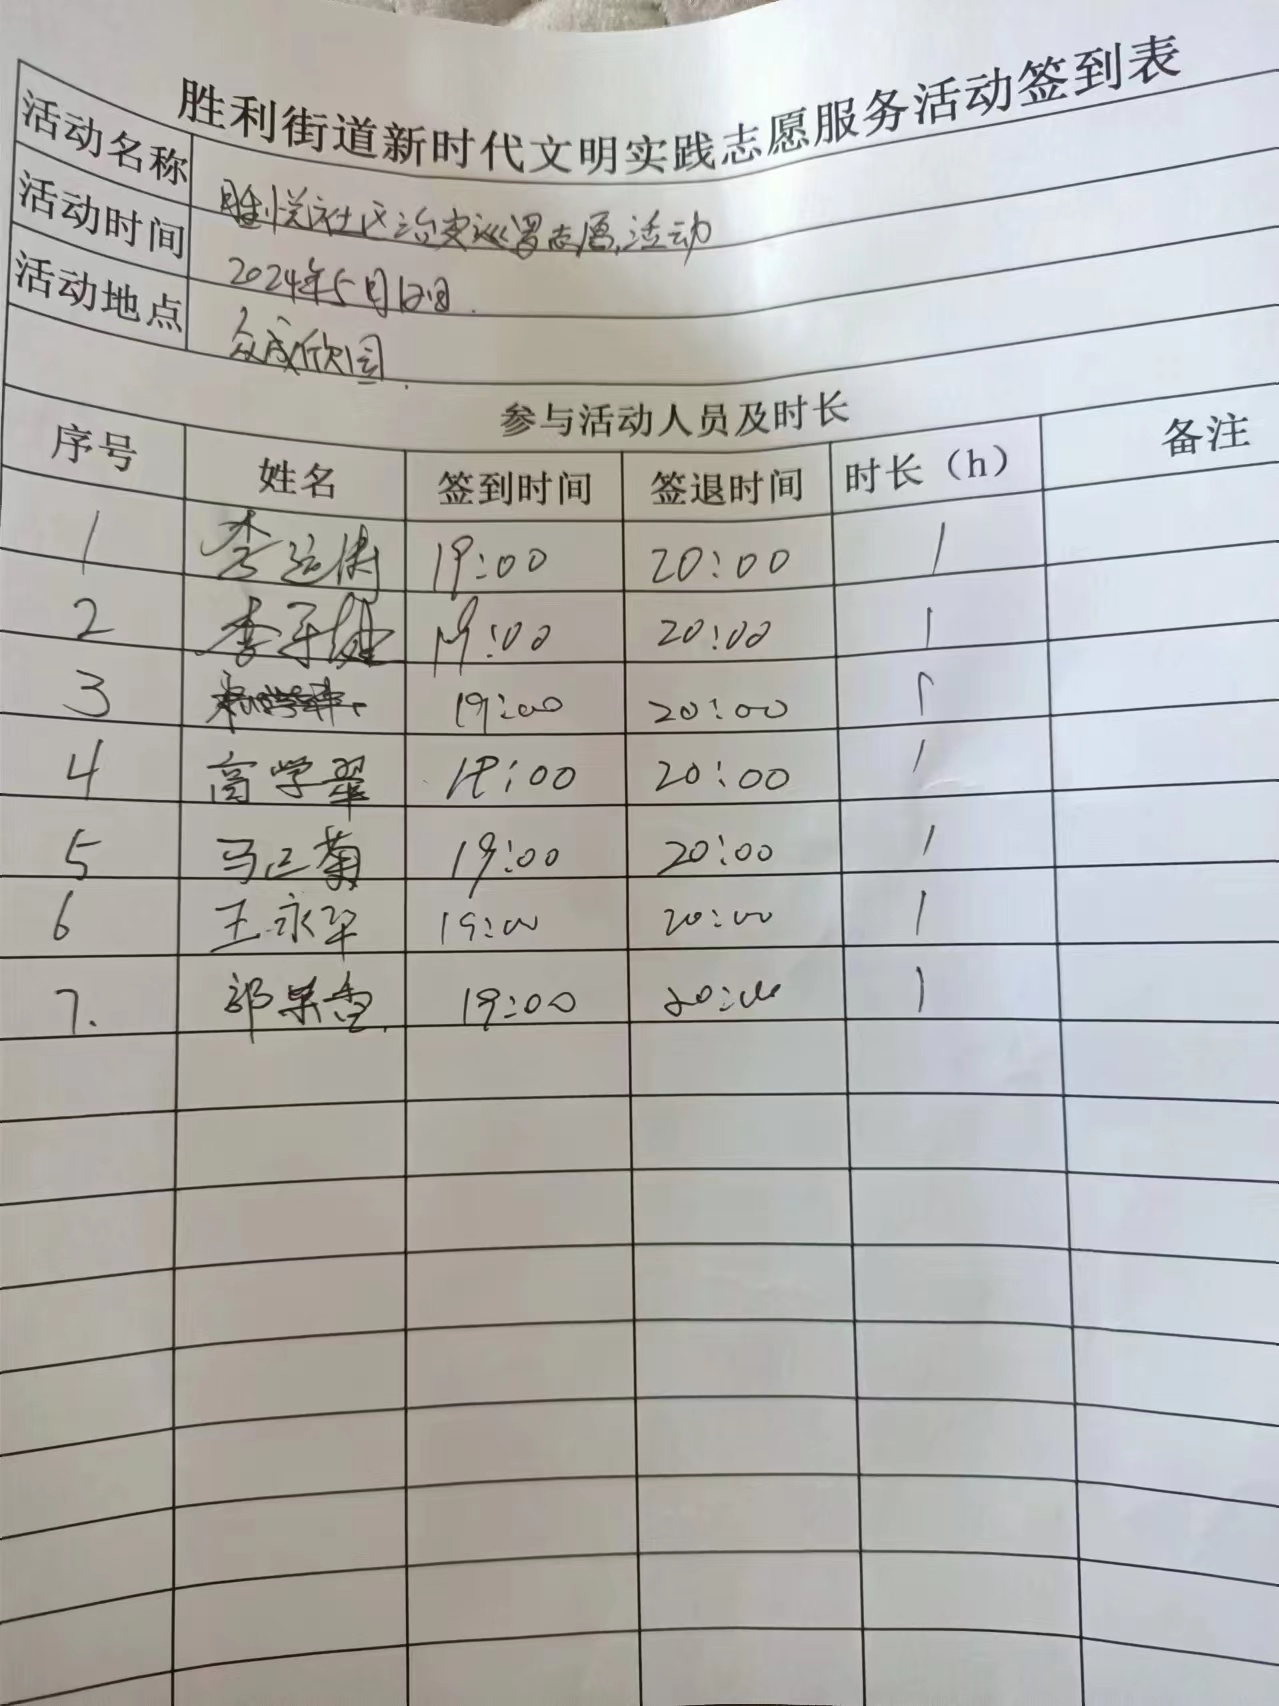 胜利街道新时代文明实践志愿服务活动签到表
活动名称 胜悦社区治安巡逻志愿活动
活动时间 2024年5月12日.
活动地点 众成欣园.
参与活动人员及时长
序号 姓名 签到时间 签退时间 时长（h） 备注
1 李运涛 19:00 20:00 1
2 李子健 19:00 20:00 1
3 19:00 20:00 1
4 高学翠 19:00 20:00 1
5 马正菊 19:00 20:00 1
6 王永华 19:00 20:00 1
7. 郭果香. 19:00 20:00 1